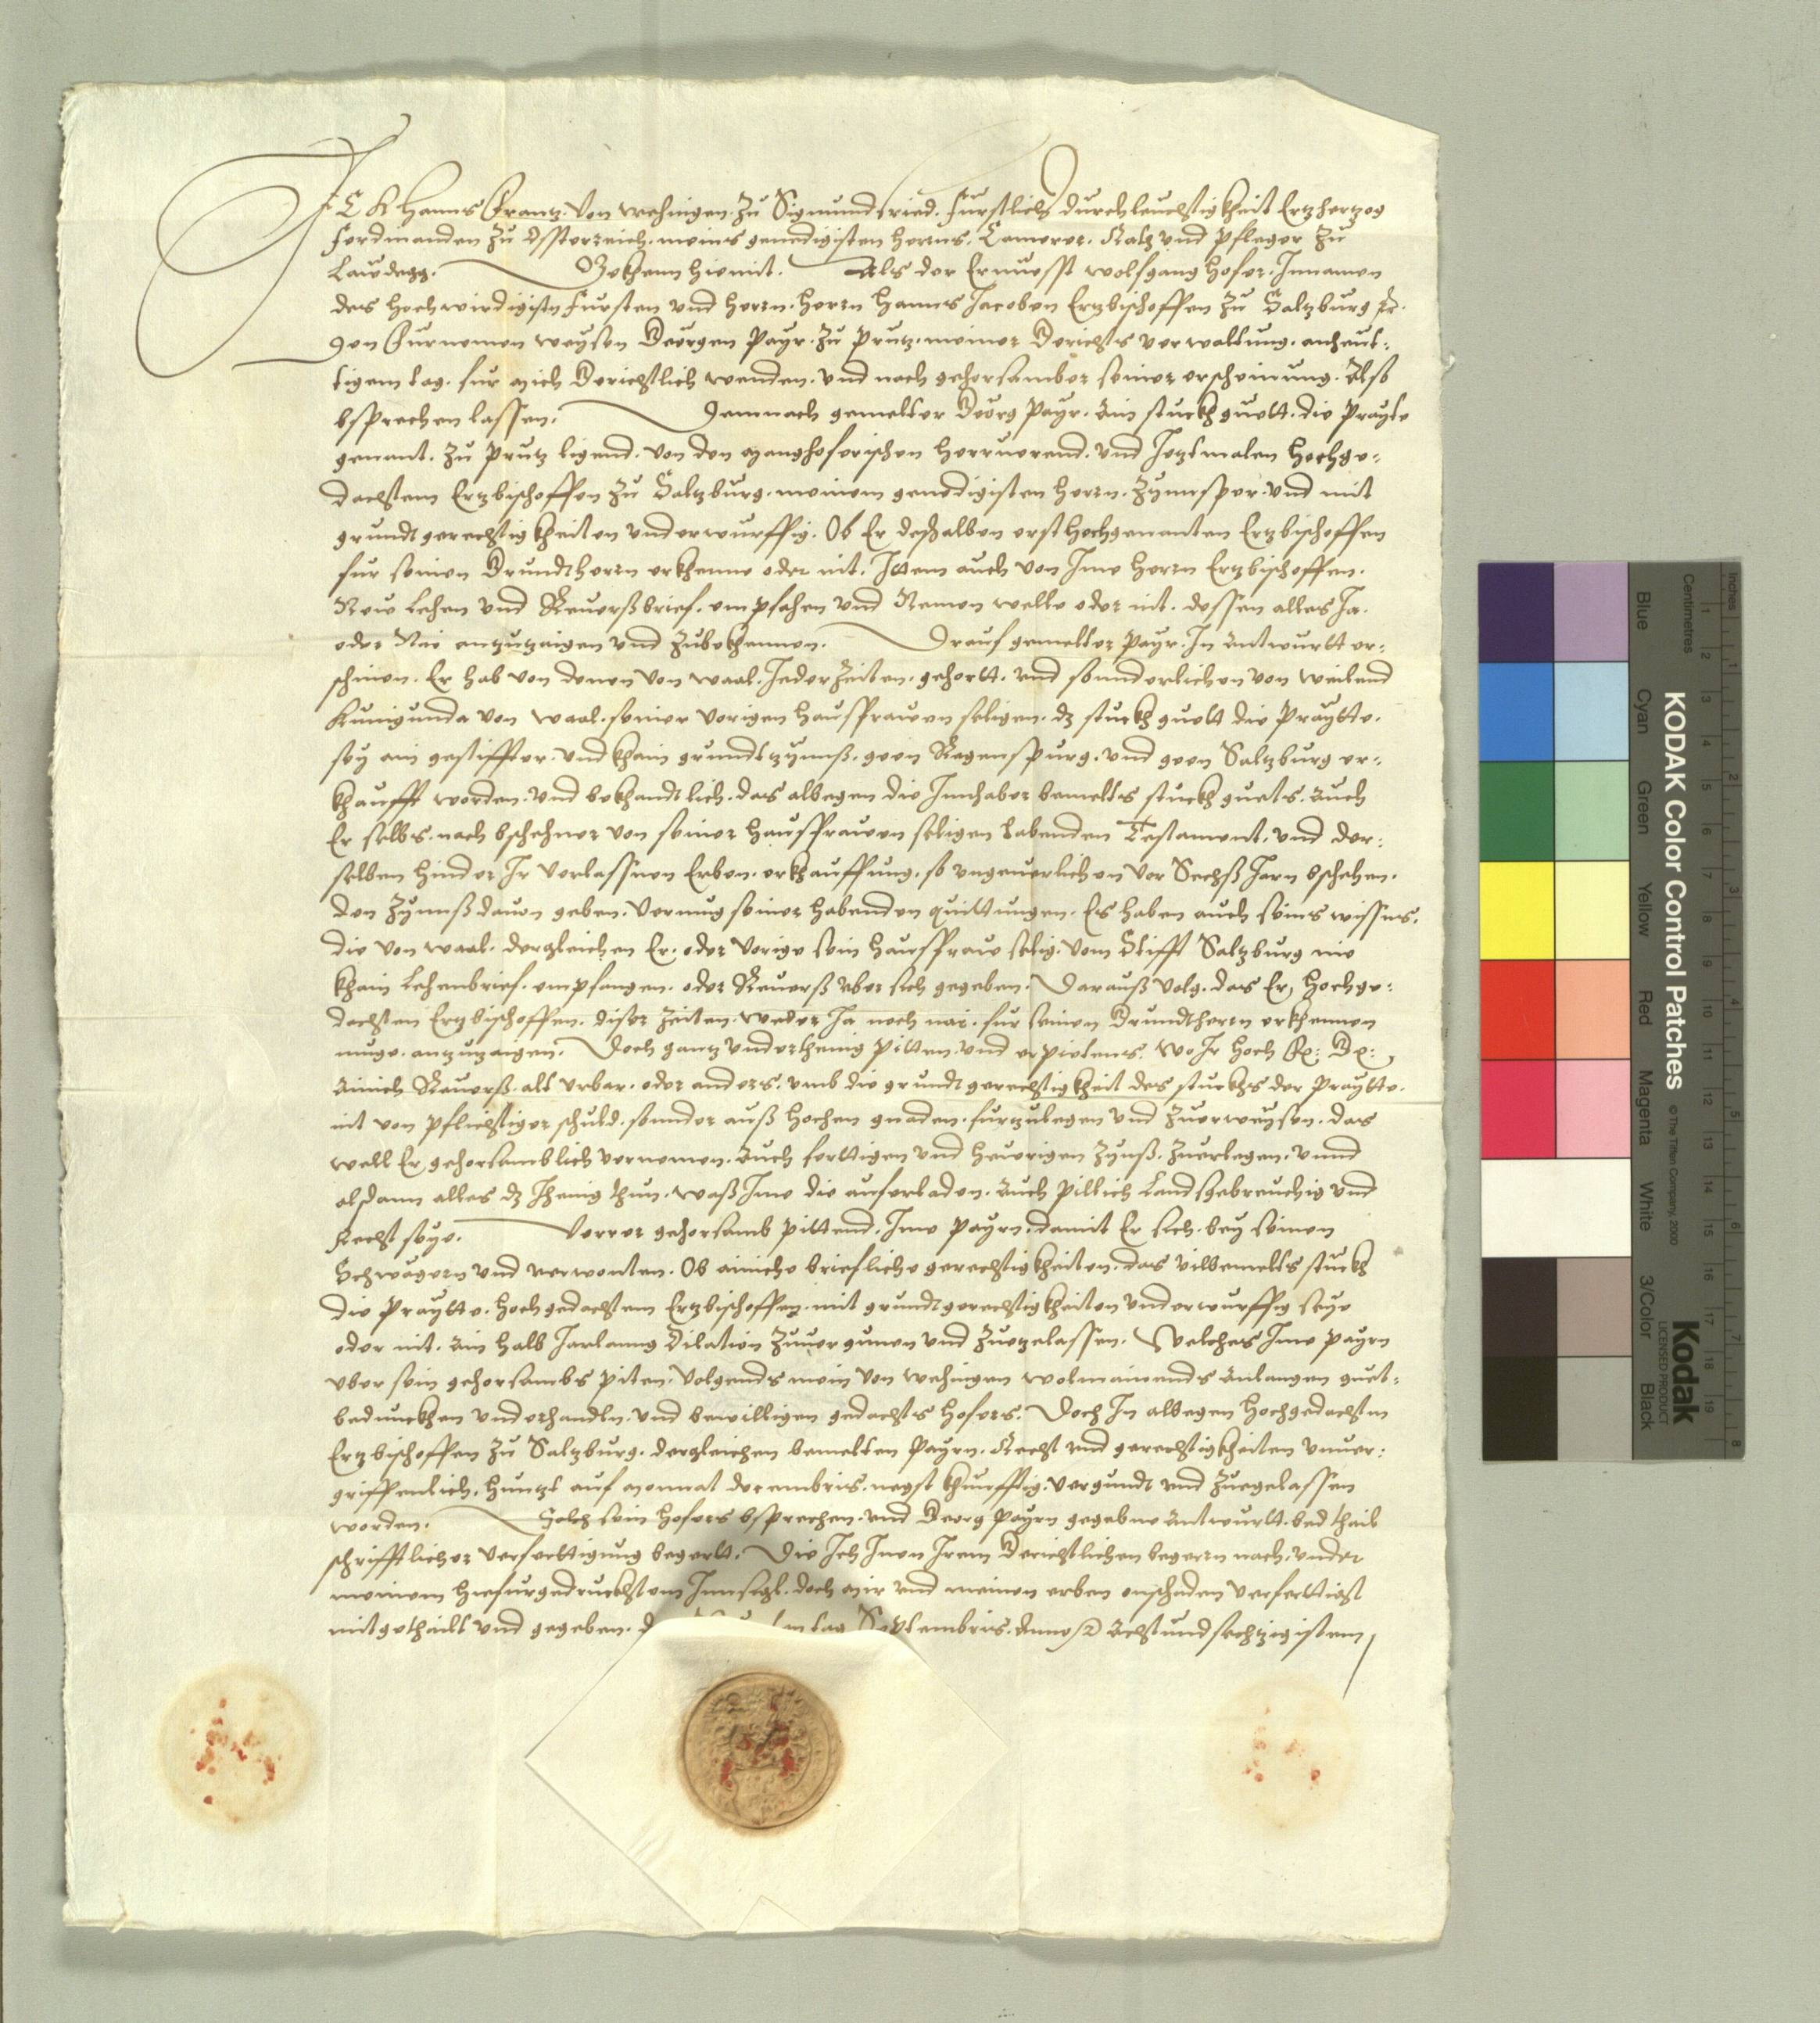 ICH Hanns Frantz von Wehingen. zu Sigmundsried. Furstlich Durchleuchtigkheit Ertzhertzog
Ferdinanden zu Osterreich. meins genedigisten Herrns. Camerer. Ratz und Pfleger zu
Laudegg. Bekhenn hiemit. Als der Ernuesst Wolfgang Hofer. Innamen
des Hochwirdigisten Fursten und Herrn. Herrn Hanns Jacoben Ertzbischoffen zu Saltzburg
den Furnemen weysen Georgen Payr. zu Prutz. meiner Gerichts verwaltung. anheut-
tigem tag. fur mich Gerichtlich wenden. und nach gehorsamber seiner erscheinung. Also
bsprechen lassen. Demnach gemelter Georg Payr. Ain stuckh guett. die Prayte
genant. zu Prutz ligend. von den herruerend. und Jetztmalen Hochge-
dachtem Ertzbischoffen zu Saltzburg. meinem genedigisten Herrn. Zynnsper. und mit
grundtgerechtigkheiten underwurffig. Ob Er deßhalben ersthochgenanten Ertzbischoffen
fur seinen Grundtherrn erkhenne oder nit. Item auch von Ime Herrn Ertzbischoffen.
New Lehen und Reuerßbrief. empfahen und Nemen welle oder nit. dessen alles Ja.
oder Nai anzutzaigen und zubekhennen. Drauf gemelter Payr. In Antwurtt er-
schinen. Er hab von denen von Waal. Jederzeiten. gehortt. und sounderlichen von weilend
Kunigunda von Waal. seiner vorigen Hausfrauen seligen. dz stuckh guett die Praytte.
sey ain gestiffter. und khain grundtzynnß. geen Regenspurg. und geen Saltzburg er-
khaufft worden. und bekhandtlich. das albegen die Innhaber bemelts stuckh guets. Auch
Er selbs. nach bschehner von seiner Hausfrauen seligen habenden Testament. und der-
selben hinder Ir verlassnen Erben. erkhauffung. so ungeuerlichen vor Sechß Jarn bschehen.
den Zynnß dauon geben. vermug seiner habenden quittungen. Es haben auch seins wissens.
die von Waal. dergleichen Er. oder vorige sein Hausfraw selig. vom Stifft Saltzburg nie
khain Lehenbrief. empfangen. oder Reuerß uber sich gegeben. Darauß volg. das Er, Hochge-
dachten Ertzbischoffen. diser Zeiten. weder Ja noch nai. fur seinen Grundtherrn erkhennen
muge. antzutzaigen. Doch gantz underthenig pitten. und erpietens. Wo Ir Hoch
Ainich Reuerß. alt Urbar. oder anders. umb die grundtgerechtigkheit des stuckhs der Praytte.
nit von pflichtiger schuld. sonnder auß hochen gnaden. furtzulegen und zuerweysen. das
well Er gehorsamblich vernemen. Auch ferttigen und heurigen Zynß. zuerlegen. unnd
alsdann alles dz Jhenig thun. waß Ime die auferladen. Auch pillich Landsgebreuchig und
Recht seye. Verrer gehorsamb pittend. Ime Payrn. damit Er sich. bey seinen
Schwagern und verwonten. Ob ainiche briefliche gerechtigkheiten. das vilbemelts stuckh
die Praytte. Hochgedachtem Ertzbischoffen. mit grundtgerechtigkheiten underwurffig seye
oder nit. Ain halb Jarlanng Dilation zuuergunen und zuezelassen. Welches Ime Payrn
uber sein gehorsambs piten. volgends mein von Wehingen wolmainends Anlangen guet-
beduncken underhandln. und bewilligen gedachts Hofers. Doch In albegen Hochgedachtm
Ertzbischoffen zu Saltzburg. dergleichen bemelten Payrn. Recht und gerechtigkheiten unuer-
griffenlich. huntzt auf Monnat Decembris. negst khunfftig. vergundt und zuegelassen
worden. Solch sein Hofers bsprechen. und Georg Payrn gegebne Antwurtt. bed thail
schrifftlicher verferttigung begertt. Die Ich Inen Irem Gerichtlichen begern nach. under
meinem hiefurgedruckhtem Innsigl. doch mir und meinen erben onschaden verferttigt
mitgethailt und gegeben. tag Septembris. Anno Achtundsechtzigisten

KODAK Color Control Patches
© The Tiffen Company, 2000
Kodak
LICENSED PRODUCT
Blue Cyan Green Yellow Red Magenta White 3/Color Black
Inches 1 2 3 4 5 6 7 8
Centimetres 1 2 3 4 5 6 7 8 9 10 11 12 13 14 15 16 17 18 19